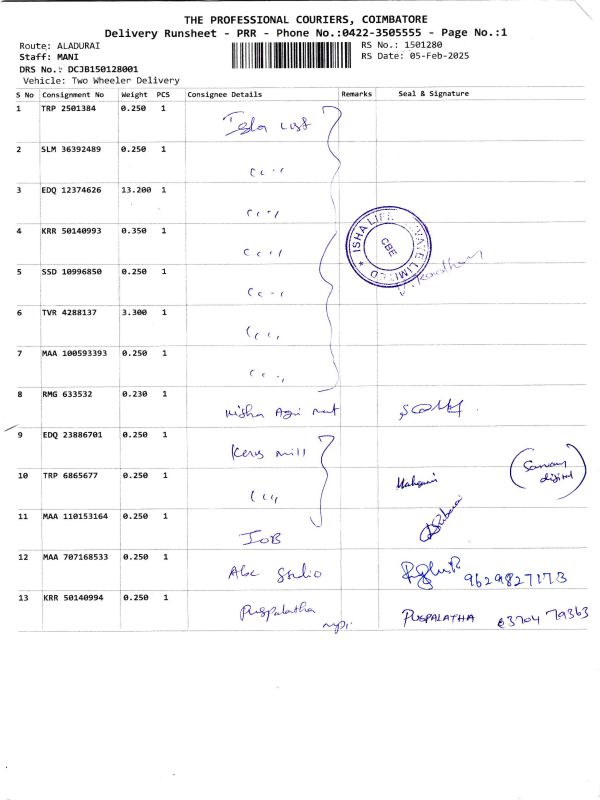 THE PROFESSIONAL COURIERS, COIMBATORE
Delivery Runsheet - PRR - Phone No.:0422-3505555 - Page No.:1
Route: ALADURAI
RS No.: 1501280
Staff: MANI
RS Date: 05-Feb-2025
DRS No.: DCJB150128001
Vehicle: Two Wheeler Delivery
S No Consignment No Weight PCS Consignee Details Remarks Seal & Signature
1 TRP 2501384 0.250 1
2 SLM 36392489 0.250 1
3 EDQ 12374626 13.200 1
4 KRR 50140993 0.350 1
ISHA LIFE PRIVATE LIMITED
CBE
5 SSD 10996850 0.250 1
6 TVR 4288137 3.300 1
7 MAA 100593393 0.250 1
8 RMG 633532 0.230 1
9 EDQ 23886701 0.250 1 mill
10 TRP 6865677 0.250 1
11 MAA 110153164 0.250 1 IOB
12 MAA 707168533 0.250 1 Abc Studio 9629827173
13 KRR 50140994 0.250 1 Puspalatha PUSPALATHA 63704 79363